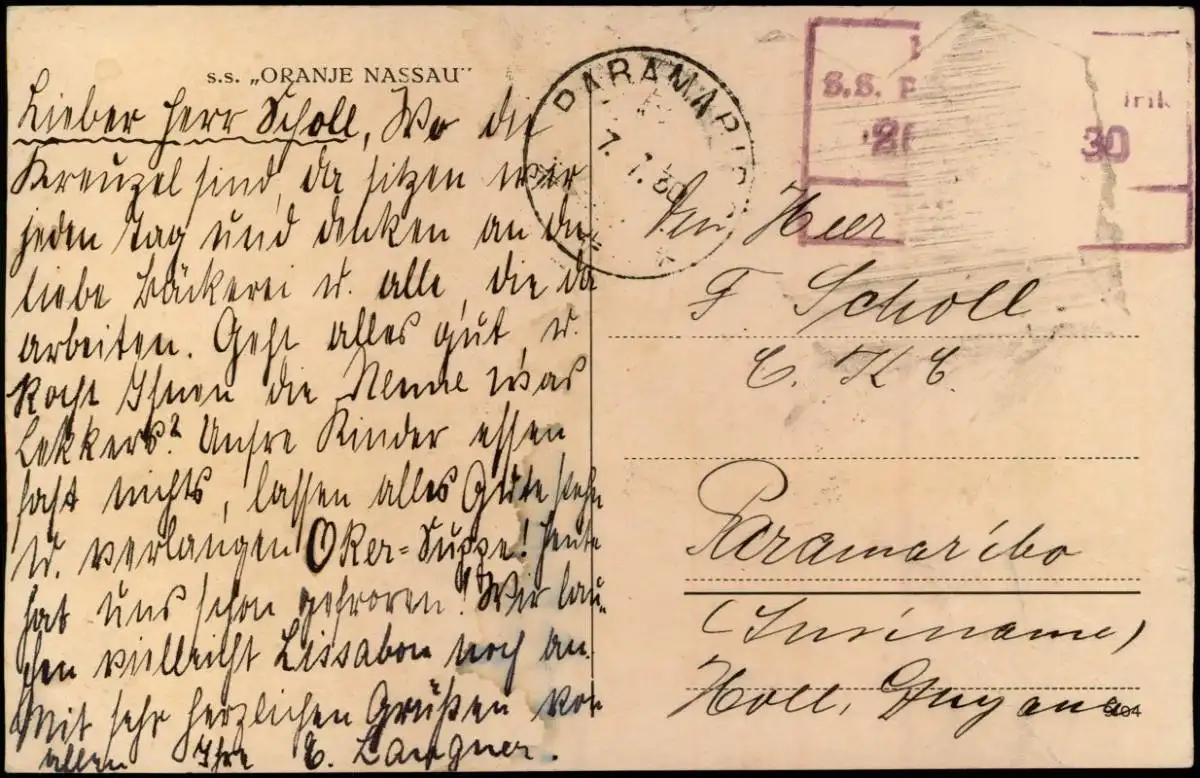 s.s. „ORANJE NASSAU"
Lieber Herr Scholl, Wo die
Kreuzel sind, da sitzen wir
jeden Tag und denken an die
liebe Bäckerei u. alle, die da
arbeiten. Geht alles gut, u.
kocht Ihnen die Nenne was
Lekkers? Unsre Kinder essen
fast nichts, lassen alles Gute stehn
u. verlangen Oker=Suppe! Heute
hat uns schon gefroren! Wir lau=
fen vielleicht Lissabon noch an.
Mit sehr herzlichen Grüßen von
allen Ihre E. Langner.
PARAMARIBO
7. 1. 30
S.S. P
rik
30
Den Heer
F. Scholl
C. K. C.
Paramaribo
(Suriname)
Holl. Guyana